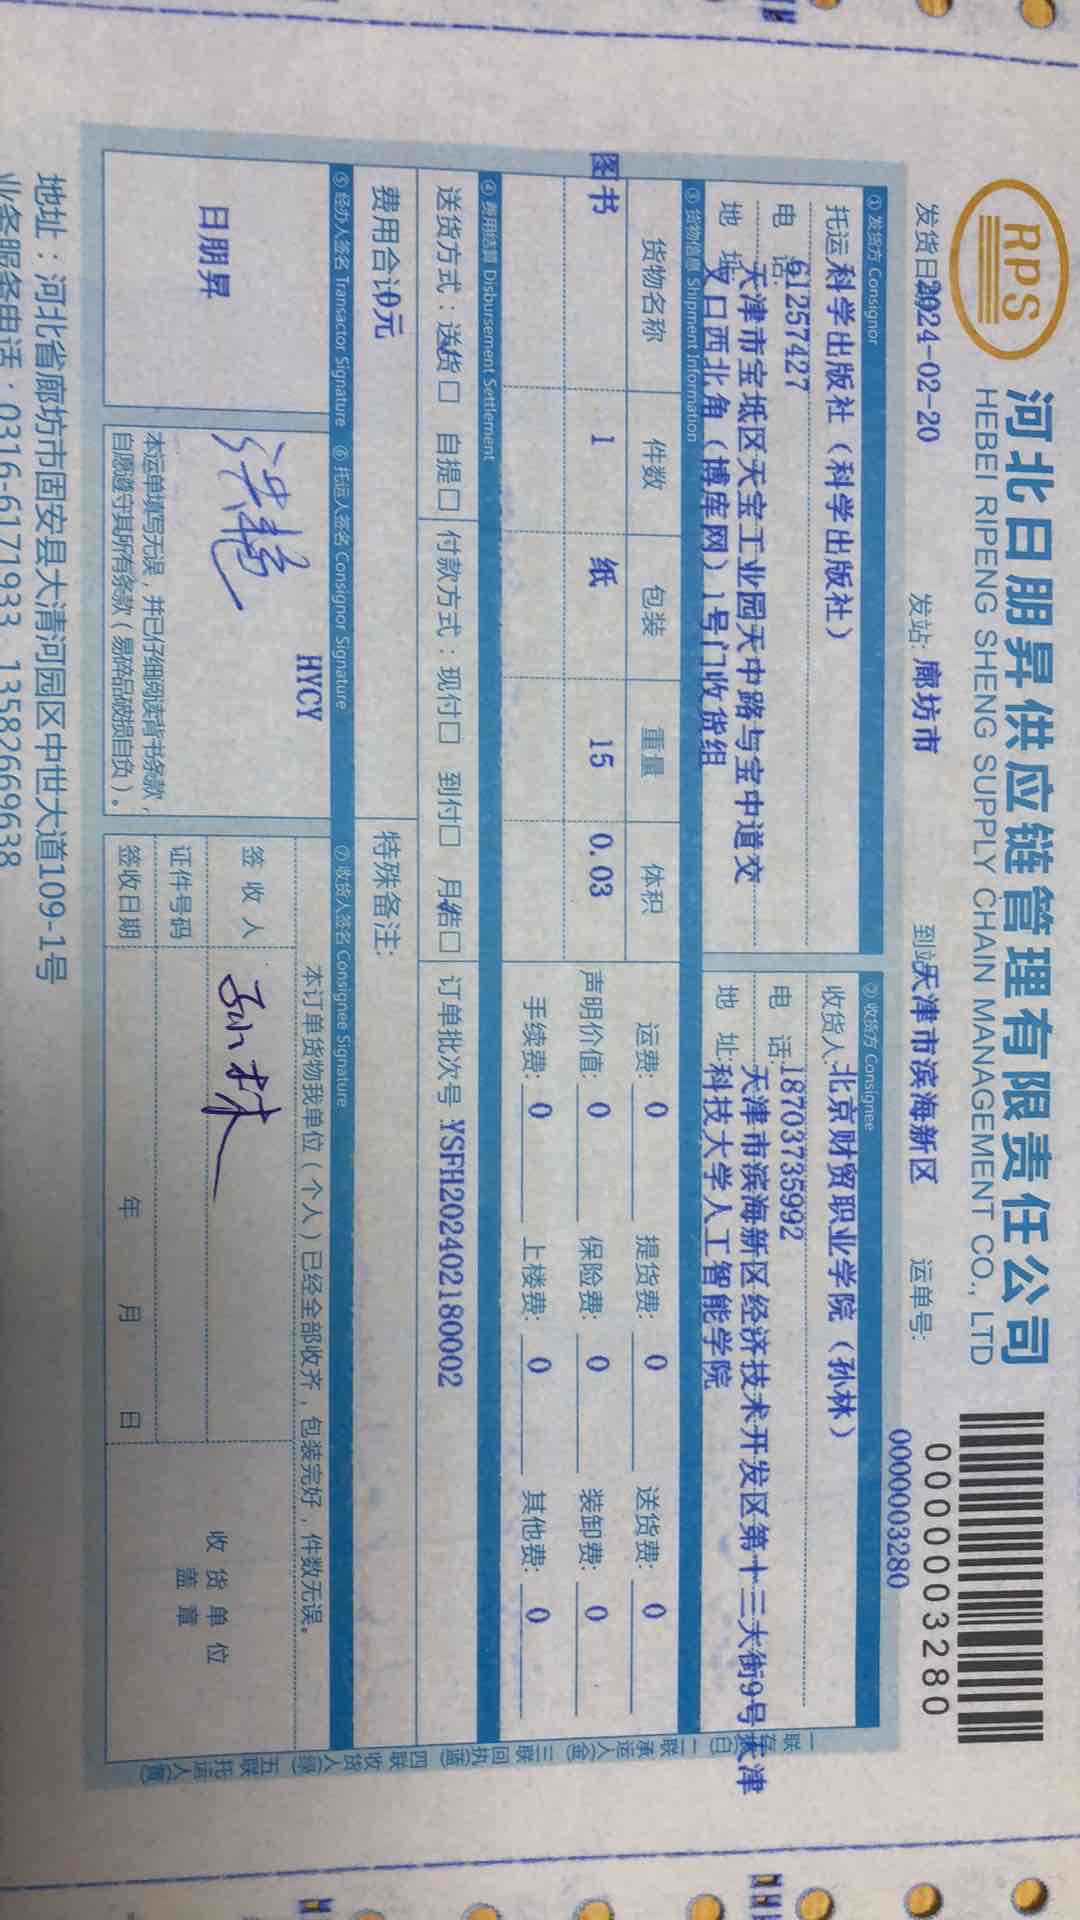 RPS
河北日朋昇供应链管理有限责任公司
HEBEI RIPENG SHENG SUPPLY CHAIN MANAGEMENT CO., LTD
0000003280
发货日期 2024-02-20 发站: 廊坊市 到站 天津市滨海新区 运单号: 0000003280
① 发货方 Consignor
托运 科学出版社（科学出版社）
电 话: 61257427
地 址: 天津市宝坻区天宝工业园天中路与宝中道交
叉口西北角（博库网）1号门收货组
② 收货方 Consignee
收货人: 北京财贸职业学院（孙林）
电 话: 18703735992
地 址: 天津市滨海新区经济技术开发区第十三大街9号天津
科技大学人工智能学院
③ 货物信息 Shipment Information
货物名称 件数 包装 重量 体积
图书 1 纸 15 0.03
运费: 0 提货费: 0 送货费: 0
声明价值: 0 保险费: 0 装卸费: 0
手续费: 0 上楼费: 0 其他费: 0
④ 费用结算 Disbursement Settlement
送货方式：送货□ 自提□ 付款方式：现付□ 到付□ 月结□ 订单批次号 YSFH202402180002
费用合计 0元
特殊备注:
⑤ 经办人签名 Transactor Signature
日朋昇
⑥ 托运人签名 Consignor Signature
HYCY
本运单填写无误，并已仔细阅读背书条款，
自愿遵守其所有条款（易碎品破损自负）。
⑦ 收货人签名 Consignee Signature
本订单货物我单位（个人）已经全部收齐，包装完好，件数无误。
签收人 孙林
证件号码
签收日期 年 月 日
收货单位
盖章
一联存根(白) 二联承运人(金) 三联回执(蓝) 四联收货人(绿) 五联托运人(黄)
地址：河北省廊坊市固安县大清河园区中世大道109-1号
业务服务电话：0316-6171933 13582669638